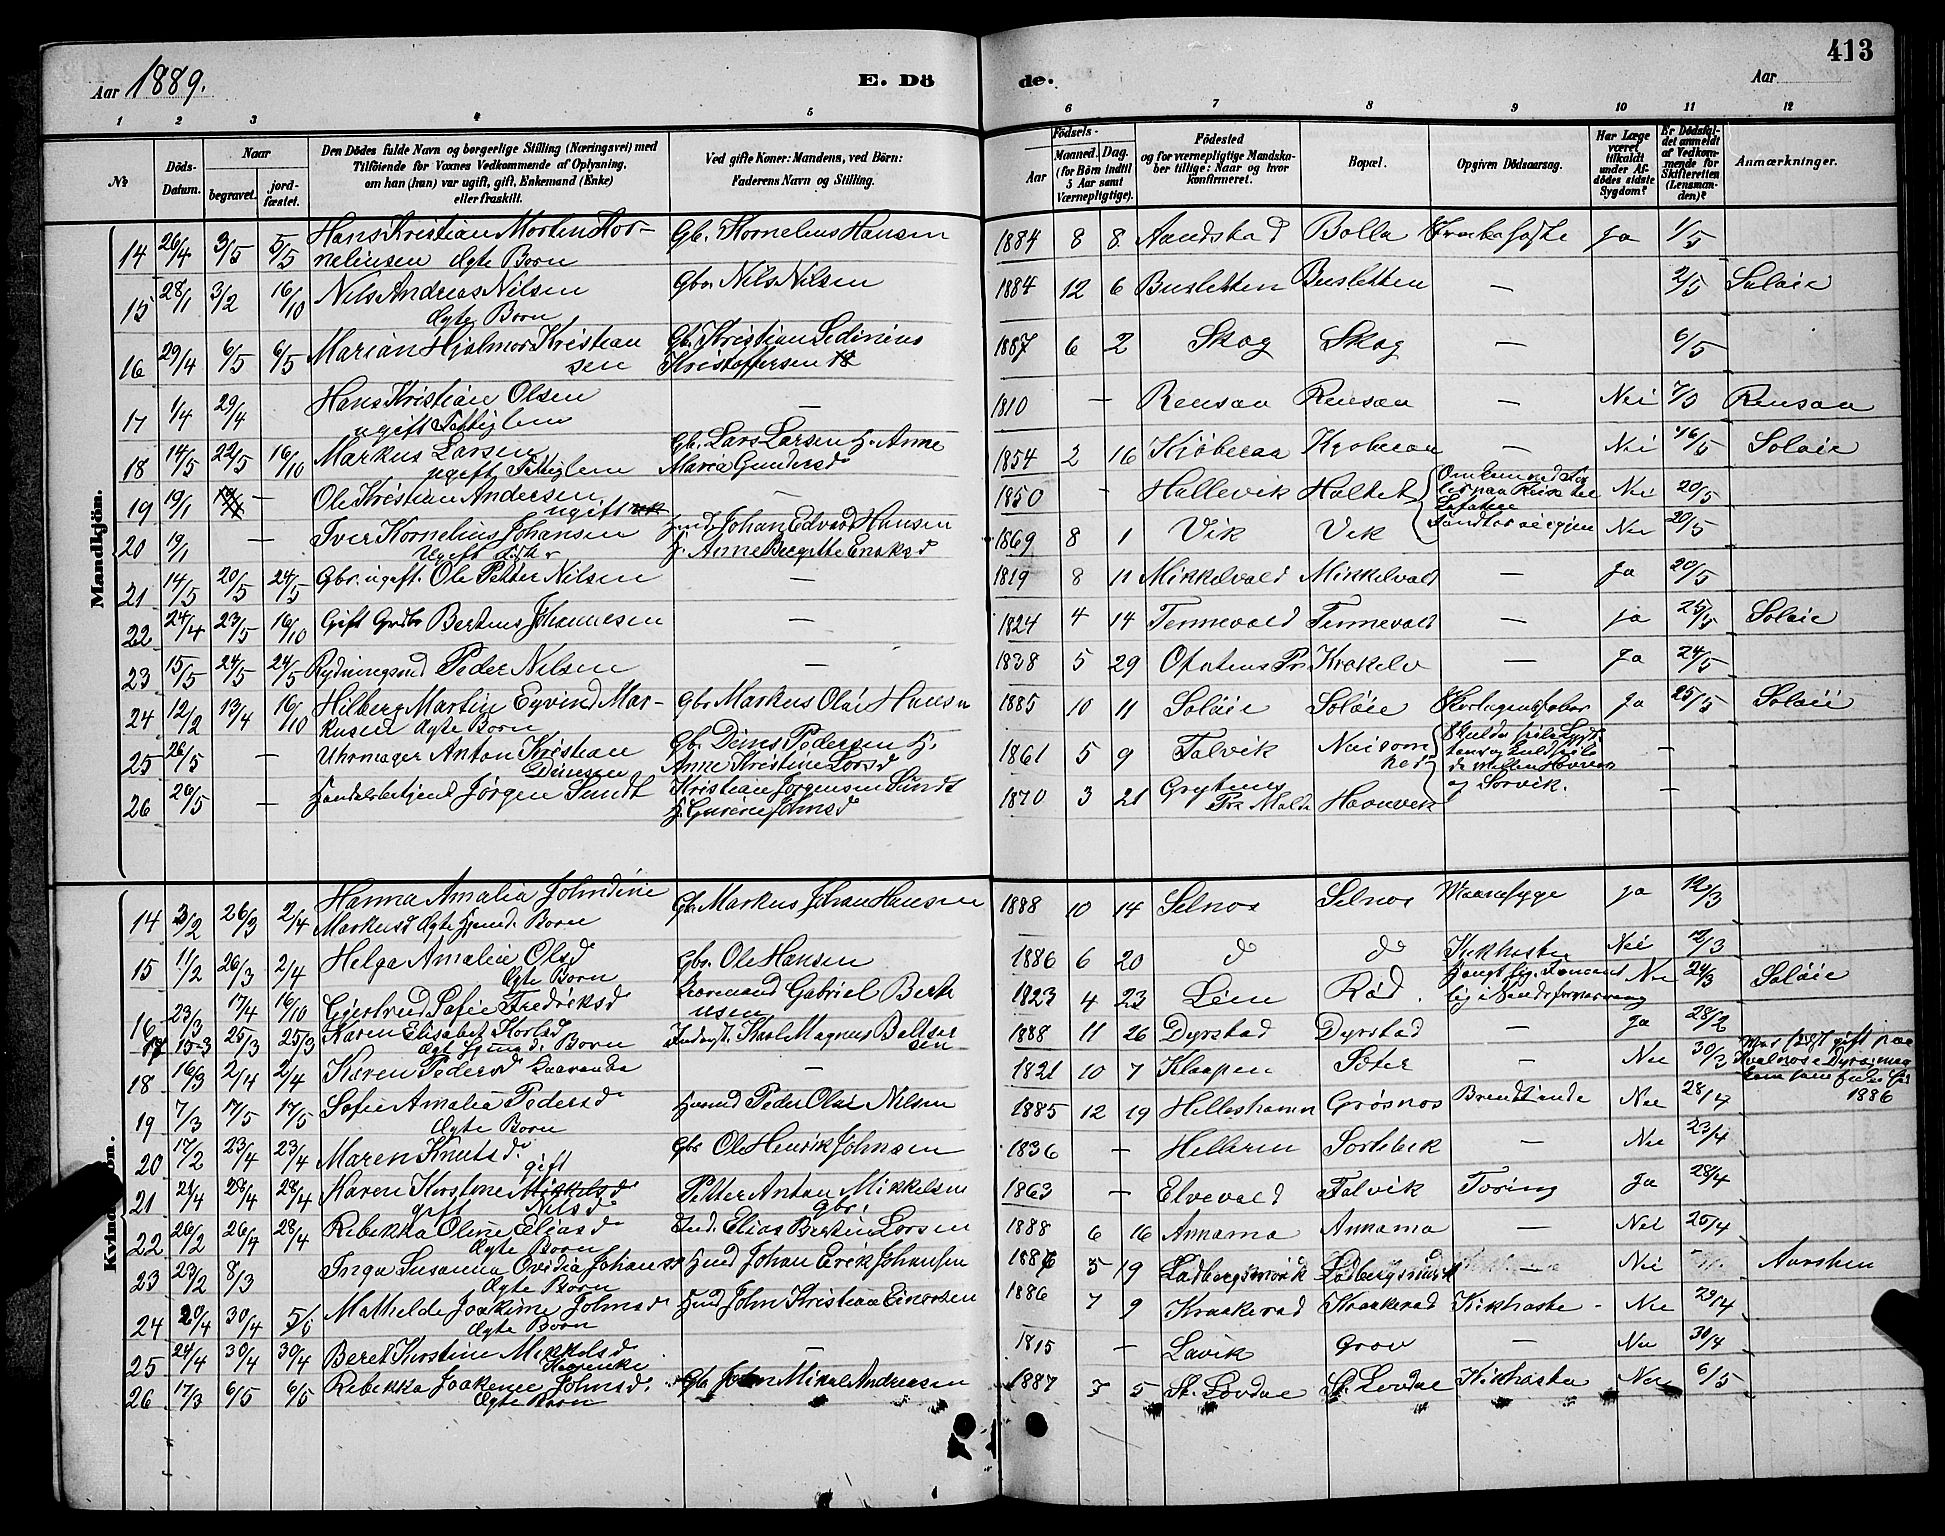 413
Aar 1889.
E. Dö
de.
Aar
1 2 3 4 5 6 7 8 9 10 11 12
№
Döds-Datum.
Naar
begravet.
jord-fæstet.
Den Dödes fulde Navn og borgerlige Stilling (Næringsvei) med
Tilföiende for Voxnes Vedkommende af Oplysning,
om han (hun) var ugift, gift, Enkemand (Enke)
eller fraskilt.
Ved gifte Koner: Mandens, ved Börn:
Faderens Navn og Stilling.
Födsels-
Aar
Maaned. Dag.
(for Börn indtil
5 Aar samt
Værnepligtige).
Födested
og for værnepligtige Mandska-
ber tillige: Naar og hvor
konfirmeret.
Bopæl.
Opgiven Dödsaarsag.
Har Læge
været
tilkaldt
under Af-
dödes sidste
Sygdom?
Er Dödsfal-
det anmeldt
af Vedkom-
mende for
Skifteretten
(Lensman-
den)?
Anmærkninger.
Mandkjön.
14 26/4 3/5 5/5 Hans Kristian Morten Kor-
neliussen Ægte Barn Gb. Kornelius Hansen 1884 8 8 Aandstad Bolla Ja 1/5
15 28/1 3/2 16/10 Nils Andreas Nilsen
Ægte Barn Gbr. Nils Nilsen 1884 12 6 Busletten Busletten — 2/5 Soløie
16 29/4 6/5 6/5 Marian Hjalmar Kristian
sen Gb. Kristian Sedinius
Kristoffersen 1887 6 2 Skog Skog — 6/5
17 1/4 29/4 Hans Kristian Olsen
ugift Fattiglem — 1810 — Rensaa Rensaa — Nei 7/5 Rensaa
18 14/5 22/5 16/10 Markus Larsen
ugift Fattiglem Gb. Lars Larsen H. Anne
Maria Gundersd 1854 2 16 Kjöberaa Kjøberaa — Nei 16/5 Soløie
19 19/1 — Ole Kristian Andersen
ugift — 1850 — Hallevik Haltet Omkom ved
paa Reise til Nei 20/5
20 19/1 — Iver Kornelius Johansen
Ugift Johan Edvard Hansen
H. Anne Birgitte Enoksd 1869 8 1 Vik Vik Nei 20/5
21 14/5 20/5 24/5 Gbr. ugift. Ole Petter Nilsen — 1819 8 11 Mikkelvold Mikkelvold — Ja 20/5
22 24/4 23/5 16/10 Gift Grdbr Berteus Johannesen — 1824 4 14 Tennevold Tennevold — ja 25/5 Soløie
23 15/5 24/5 24/5 Rydningsmd Peder Nilsen — 1838 5 29 Ofotens Pr Krokelv — Ja 24/5
24 12/2 13/4 16/10 Hilberg Martin Eyvind Mar-
kusen Ægte Barn Gbr Markus Olai Hansen 1885 10 11 Soløie Soløie Ja 25/5 Soløie
25 26/5 — Uhrmager Anton Kristian
Dinesen Gb. Dines Pedersen H.
Anne Kristine Larsd 1861 5 9 Talvik —
26 26/5 — Handelsbetjent Jörgen Sundt Kristian Jörgensen Sundt
1870 3 21 Grytens
Pr. Molde Havnvik og Sørvik. —
Kvindekjön.
14 3/2 26/3 2/4 Hanna Amalia Johndine
Markusd Ægte Barn Gbr Markus Johan Hansen 1888 10 14 Selnes Selnes ja 12/3
15 11/2 26/3 2/4 Helga Amalie Olsd
Ægte Barn Gbr. Ole Hansen 1886 6 20 d d Kikhoste Nei 12/3
16 23/3 17/4 16/10 Gjertrud Sofie Fredriksd Gabriel Bert
usen 1823 4 23 Lien Rød Nei 24/3 Soløie
17 13-3 25/3 25/3 Karen Elisabet Karlsd
Barn Karl Magnus Baltser
sen 1888 11 26 Dyrstad Dyrstad — Ja 28/2
18 16/3 2/4 2/4 Karen Pedersd — 1821 10 7 Klaapen Sæter — Nei 30/3
1886
19 7/3 17/5 17/5 Sofie Amalia Pedersd
Ægte Barn Husmd Peder Olai Nilsen 1885 12 19 Helleshamn Grøsnes Nei 28/4
20 17/2 23/4 23/4 Maren Knutsd.
gift Gbr Ole Henrik Johnsen 1836 — Helleren Sortebek — Nei 23/4
21 21/4 28/4 28/4 Karen Kirstine Mikkelsd
gift Nilsd Petter Anton Mikkelsen
Gbr. 1863 — Elvevold Talvik Tæring Ja 28/4
22 26/2 26/4 28/4 Rebekka Oline Eliasd
Ægte Barn Ind. Elias Bertin Larsen 1888 6 16 Annama Annama — Nei 25/4
23 23/2 8/3 Inga Susanna Ovidia Johansd
Ægte Barn Husmd Johan Erik Johansen 1886 5 19 Ladbergsmark Ladbergsmark Nei Aarsten
24 20/4 30/4 5/6 Mathilde Joakime Johnsd
Ægte Barn Husmd John Kristian Einarsen 1886 7 9 Kraakerød Kraakerød Kikhoste - Nei 29/4
25 24/4 30/4 30/4 Beret Kirstine Mikkelsd
— 1815 — Lavik Grov — Nei 30/4
26 17/3 6/5 6/5 Rebekka Joakime Johnsd.
Ægte Barn Gb John Mikal Andreasen 1887 7 5 St. Lovdal St. Lovdal Kikhoste Nei 6/5